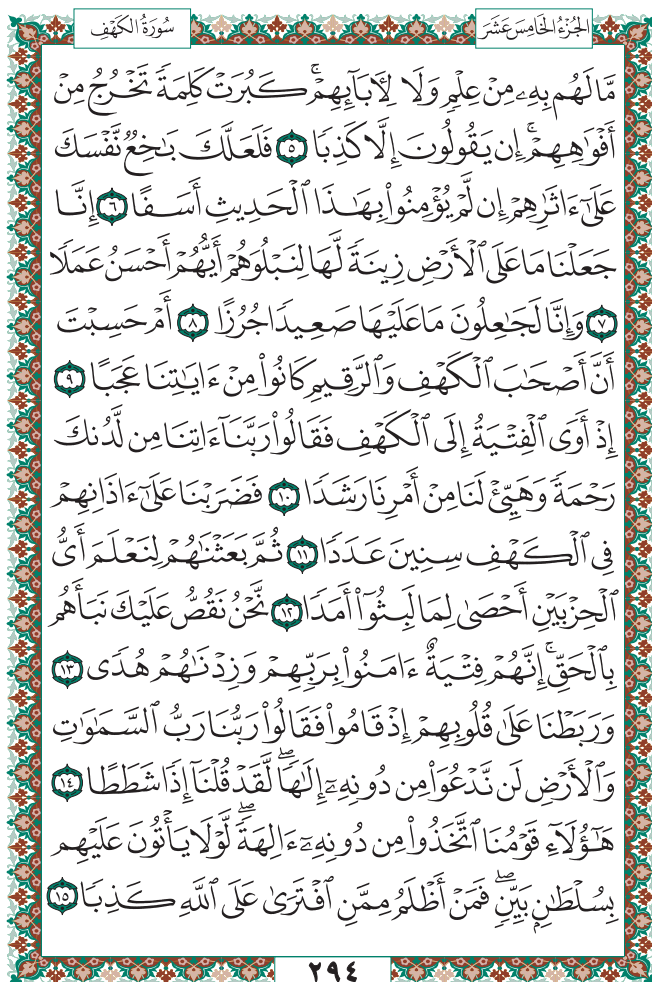 الجُزْءُ الخَامِسَ عَشَرَ
سُورَةُ الكَهْفِ
مَّا لَهُم بِهِۦ مِنْ عِلْمٍ وَلَا لِـَٔابَآئِهِمْ ۚ كَبُرَتْ كَلِمَةً تَخْرُجُ مِنْ
أَفْوَٰهِهِمْ ۚ إِن يَقُولُونَ إِلَّا كَذِبًا ٥ فَلَعَلَّكَ بَـٰخِعٌ نَّفْسَكَ
عَلَىٰٓ ءَاثَـٰرِهِمْ إِن لَّمْ يُؤْمِنُوا۟ بِهَـٰذَا ٱلْحَدِيثِ أَسَفًا ٦ إِنَّا
جَعَلْنَا مَا عَلَى ٱلْأَرْضِ زِينَةً لَّهَا لِنَبْلُوَهُمْ أَيُّهُمْ أَحْسَنُ عَمَلًا
٧ وَإِنَّا لَجَـٰعِلُونَ مَا عَلَيْهَا صَعِيدًا جُرُزًا ٨ أَمْ حَسِبْتَ
أَنَّ أَصْحَـٰبَ ٱلْكَهْفِ وَٱلرَّقِيمِ كَانُوا۟ مِنْ ءَايَـٰتِنَا عَجَبًا ٩
إِذْ أَوَى ٱلْفِتْيَةُ إِلَى ٱلْكَهْفِ فَقَالُوا۟ رَبَّنَآ ءَاتِنَا مِن لَّدُنكَ
رَحْمَةً وَهَيِّئْ لَنَا مِنْ أَمْرِنَا رَشَدًا ١٠ فَضَرَبْنَا عَلَىٰٓ ءَاذَانِهِمْ
فِى ٱلْكَهْفِ سِنِينَ عَدَدًا ١١ ثُمَّ بَعَثْنَـٰهُمْ لِنَعْلَمَ أَىُّ
ٱلْحِزْبَيْنِ أَحْصَىٰ لِمَا لَبِثُوٓا۟ أَمَدًا ١٢ نَّحْنُ نَقُصُّ عَلَيْكَ نَبَأَهُم
بِٱلْحَقِّ ۚ إِنَّهُمْ فِتْيَةٌ ءَامَنُوا۟ بِرَبِّهِمْ وَزِدْنَـٰهُمْ هُدًى ١٣
وَرَبَطْنَا عَلَىٰ قُلُوبِهِمْ إِذْ قَامُوا۟ فَقَالُوا۟ رَبُّنَا رَبُّ ٱلسَّمَـٰوَٰتِ
وَٱلْأَرْضِ لَن نَّدْعُوَا۟ مِن دُونِهِۦٓ إِلَـٰهًا ۖ لَّقَدْ قُلْنَآ إِذًا شَطَطًا ١٤
هَـٰٓؤُلَآءِ قَوْمُنَا ٱتَّخَذُوا۟ مِن دُونِهِۦٓ ءَالِهَةً ۖ لَّوْلَا يَأْتُونَ عَلَيْهِم
بِسُلْطَـٰنٍۭ بَيِّنٍ ۖ فَمَنْ أَظْلَمُ مِمَّنِ ٱفْتَرَىٰ عَلَى ٱللَّهِ كَذِبًا ١٥
٢٩٤